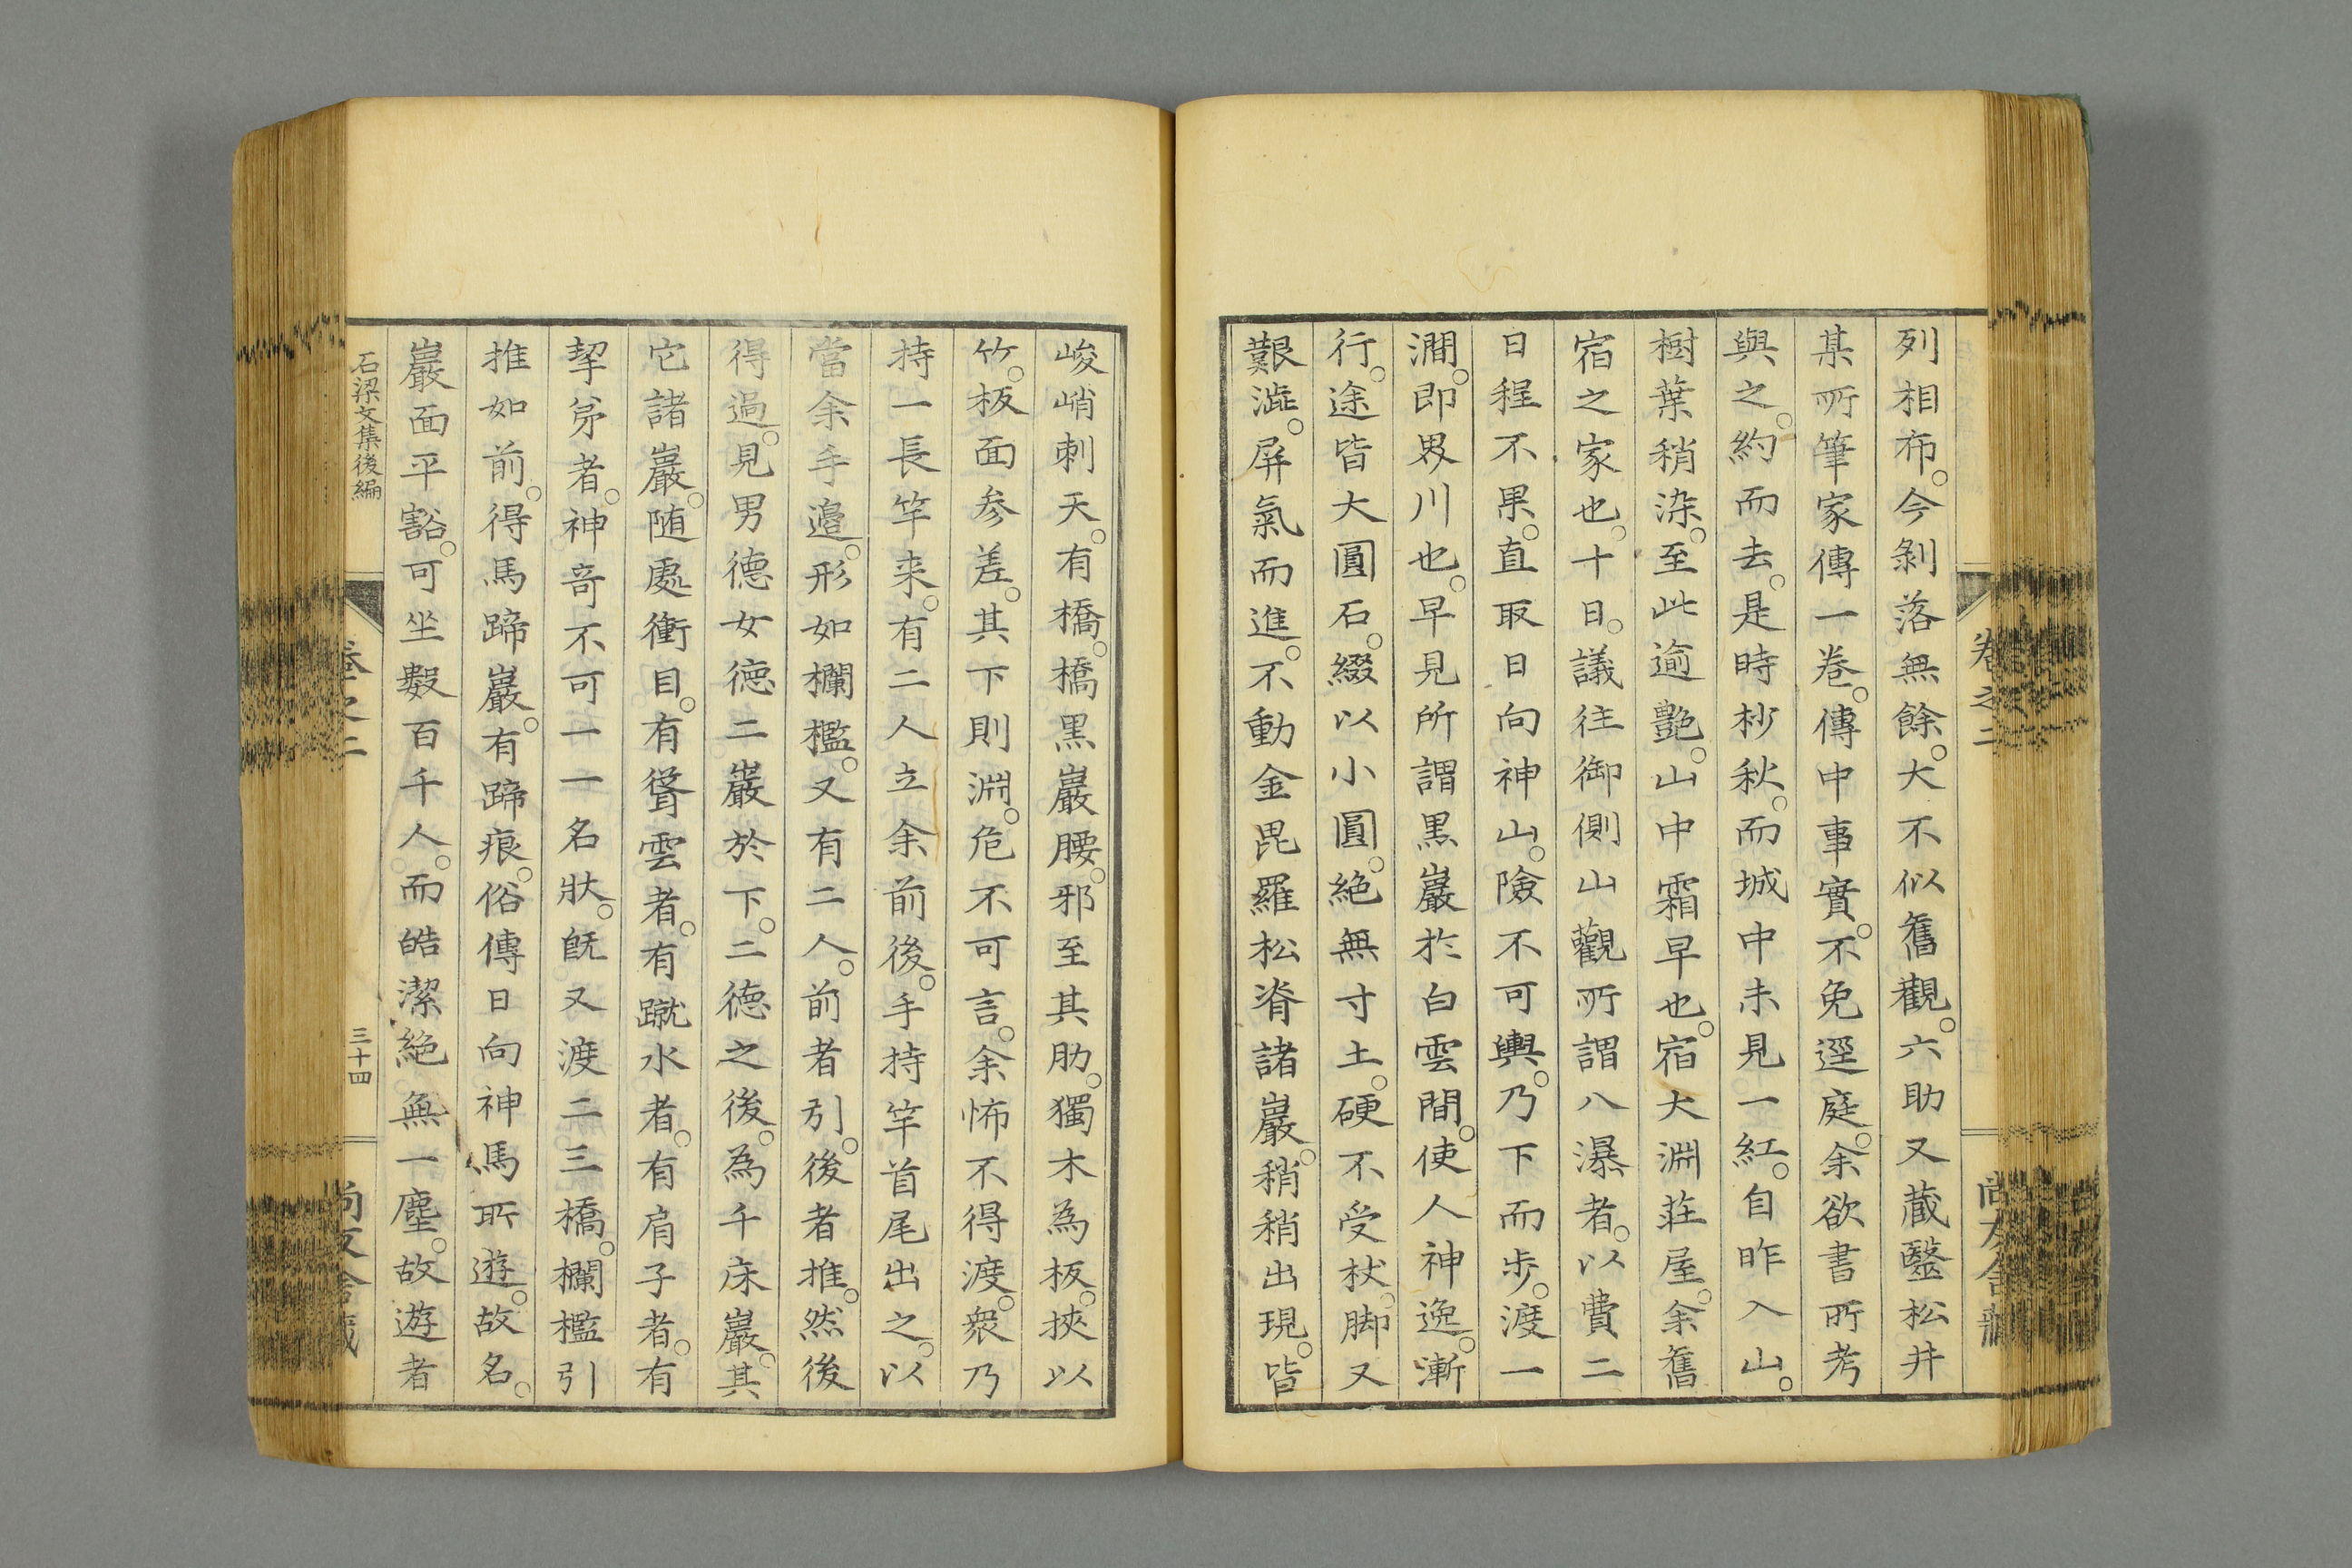 列相布。今剝落無餘。大不似舊觀。六助又藏醫松井
某所筆家傳一卷。傳中事實。不免逕庭。余欲書所考
與之。約而去。是時杪秋。而城中未見一紅。自昨入山。
樹葉稍染。至此逾艷。山中霜早也。宿大淵莊屋。余舊
宿之家也。十日。議往御側山觀所謂八瀑者。以費二
日程不果。直取日向神山。險不可輿。乃下而步。渡一
澗。即界川也。早見所謂黑巖於白雲間。使人神逸。漸
行。途皆大圓石。綴以小圓。絕無寸土。硬不受杖。脚又
艱澁。屏氣而進。不動金毘羅松脊諸巖。稍稍出現。皆
卷之二
峻峭刺天。有橋。橋黑巖腰。邪至其肋。獨木為板。挾以
竹。板面參差。其下則淵。危不可言。余怖不得渡。眾乃
持一長竿来。有二人立余前後。手持竿首尾出之。以
當余手邊。形如欄檻。又有二人。前者引。後者推。然後
得過。見男德女德二巖於下。二德之後。為千床巖。其
它諸巖。随處衝目。有聳雲者。有蹴水者。有肩子者。有
挈弟者。神奇不可一一名狀。既又渡二三橋。欄檻引
推如前。得馬蹄巖。有蹄痕。俗傳日向神馬所遊。故名。
巖面平豁。可坐數百千人。而皓潔絕無一塵。故遊者
石梁文集後編
卷之二
三十四